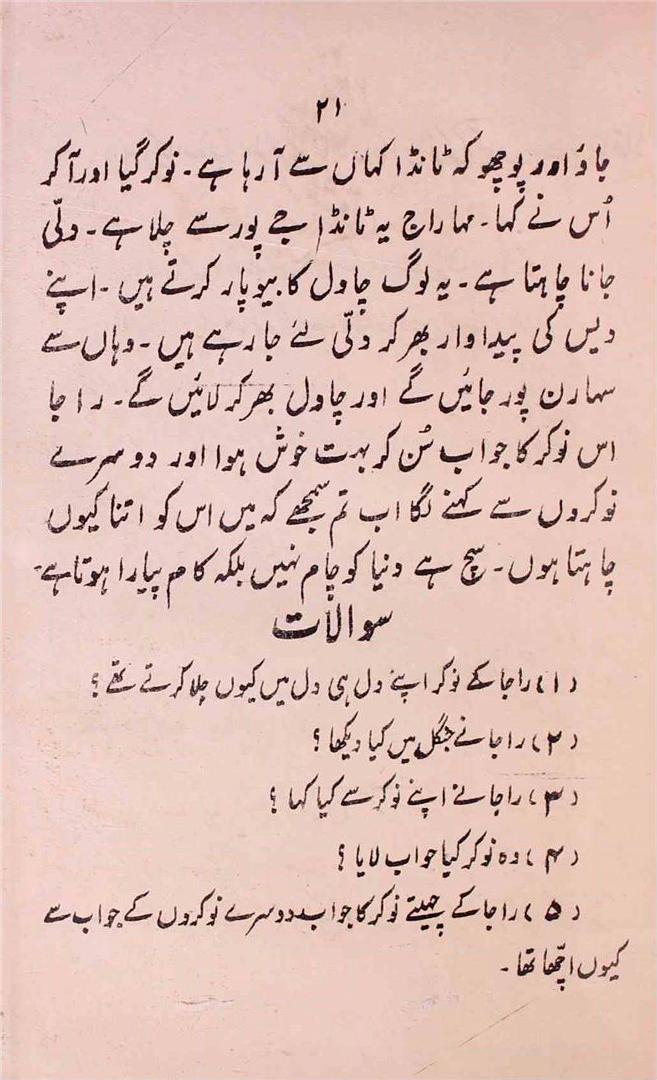 ۲۱
جاؤ اور پوچھو کہ ٹانڈا کہاں سے آ رہا ہے۔ نوکر گیا اور آ کر
اُس نے کہا۔ مہاراج یہ ٹانڈا جے پور سے چلا ہے۔ دلّی
جانا چاہتا ہے۔ یہ لوگ چاول کا بیوپار کرتے ہیں۔ اپنے
دیس کی پیداوار بھر کر دلّی لئے جا رہے ہیں۔ وہاں سے
سہارن پور جائیں گے اور چاول بھر کر لائیں گے۔ راجا
اس نوکر کا جواب سُن کر بہت خوش ہوا اور دوسرے
نوکروں سے کہنے لگا اب تم سمجھے کہ میں اس کو اتنا کیوں
چاہتا ہوں۔ سچ ہے دنیا کو چام نہیں بلکہ کام پیارا ہوتا ہے۔
سوالات
(۱) راجا کے نوکر اپنے دل ہی دل میں کیوں جلا کرتے تھے؟
(۲) راجا نے جنگل میں کیا دیکھا؟
(۳) راجا نے اپنے نوکر سے کیا کہا؟
(۴) وہ نوکر کیا جواب لایا؟
(۵) راجا کے چہیتے نوکر کا جواب دوسرے نوکروں کے جواب سے
کیوں اچّھا تھا۔